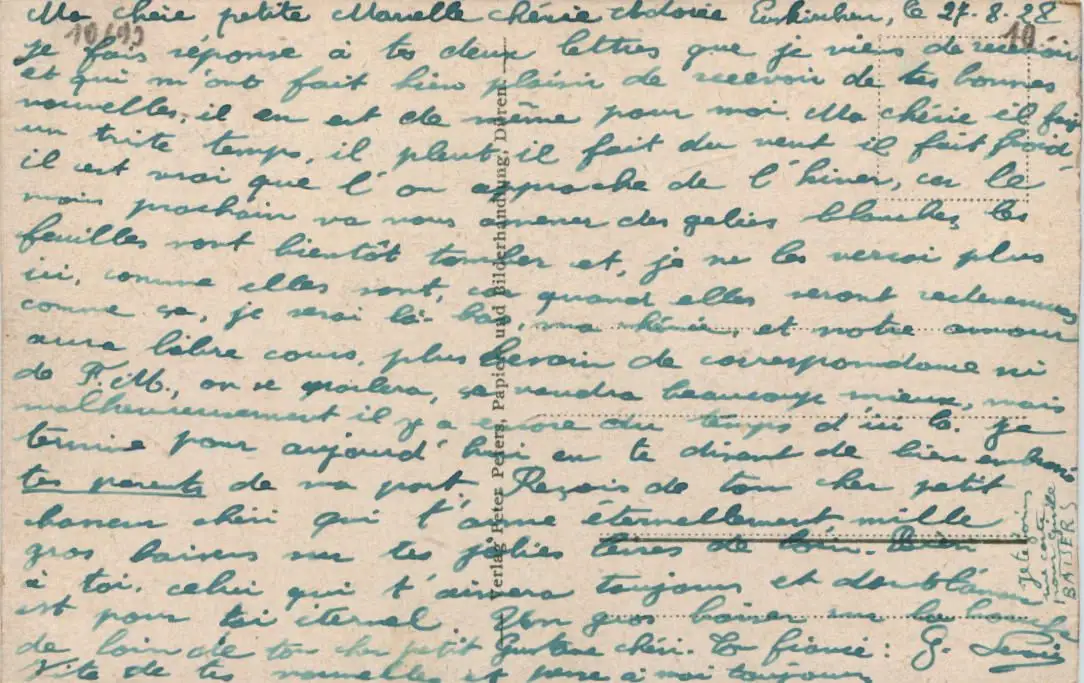 Ma chère petite Marcelle chérie Adorée Euskirchen, le 27-8-28
10
je fais réponse à tes deux lettres que je viens de recevoir
et qui m'ont fait bien plaisir de recevoir de tes bonnes
nouvelles, il en est de même pour moi. Ma chérie il fait
un triste temps, il pleut il fait du vent il fait froid
il est vrai que l'on approche de l'hiver, car le
mois prochain va nous amener des gelées blanches, les
feuilles vont bientôt tomber et, je ne les verrai plus
ici, comme elles sont, car quand elles seront redevenues
comme ça, je serai là-bas, ma chérie, et notre amour
aura libre cours, plus besoin de correspondance ni
de F.M., on se parlera, ça vaudra beaucoup mieux, mais
malheureusement il y a encore du temps d'ici là. je
termine pour aujourd'hui en te disant de bien embrassé
tes parents de ma part. Reçois de ton cher petit
chasseur chéri qui t'aime éternellement mille
gros baisers sur tes jolies lèvres de loin. Rien
à toi, celui qui t'aimera toujours et dont l'amour
est pour toi éternel Un gros baiser sur la bouche
de loin de ton cher petit Gustave chéri. Ton fiancé : G.
Vite de tes nouvelles et pense à moi toujours
Verlag Peter Peters, Papier- und Bilderhandlung, Düren
Je te envoie
une carte
BAISERS